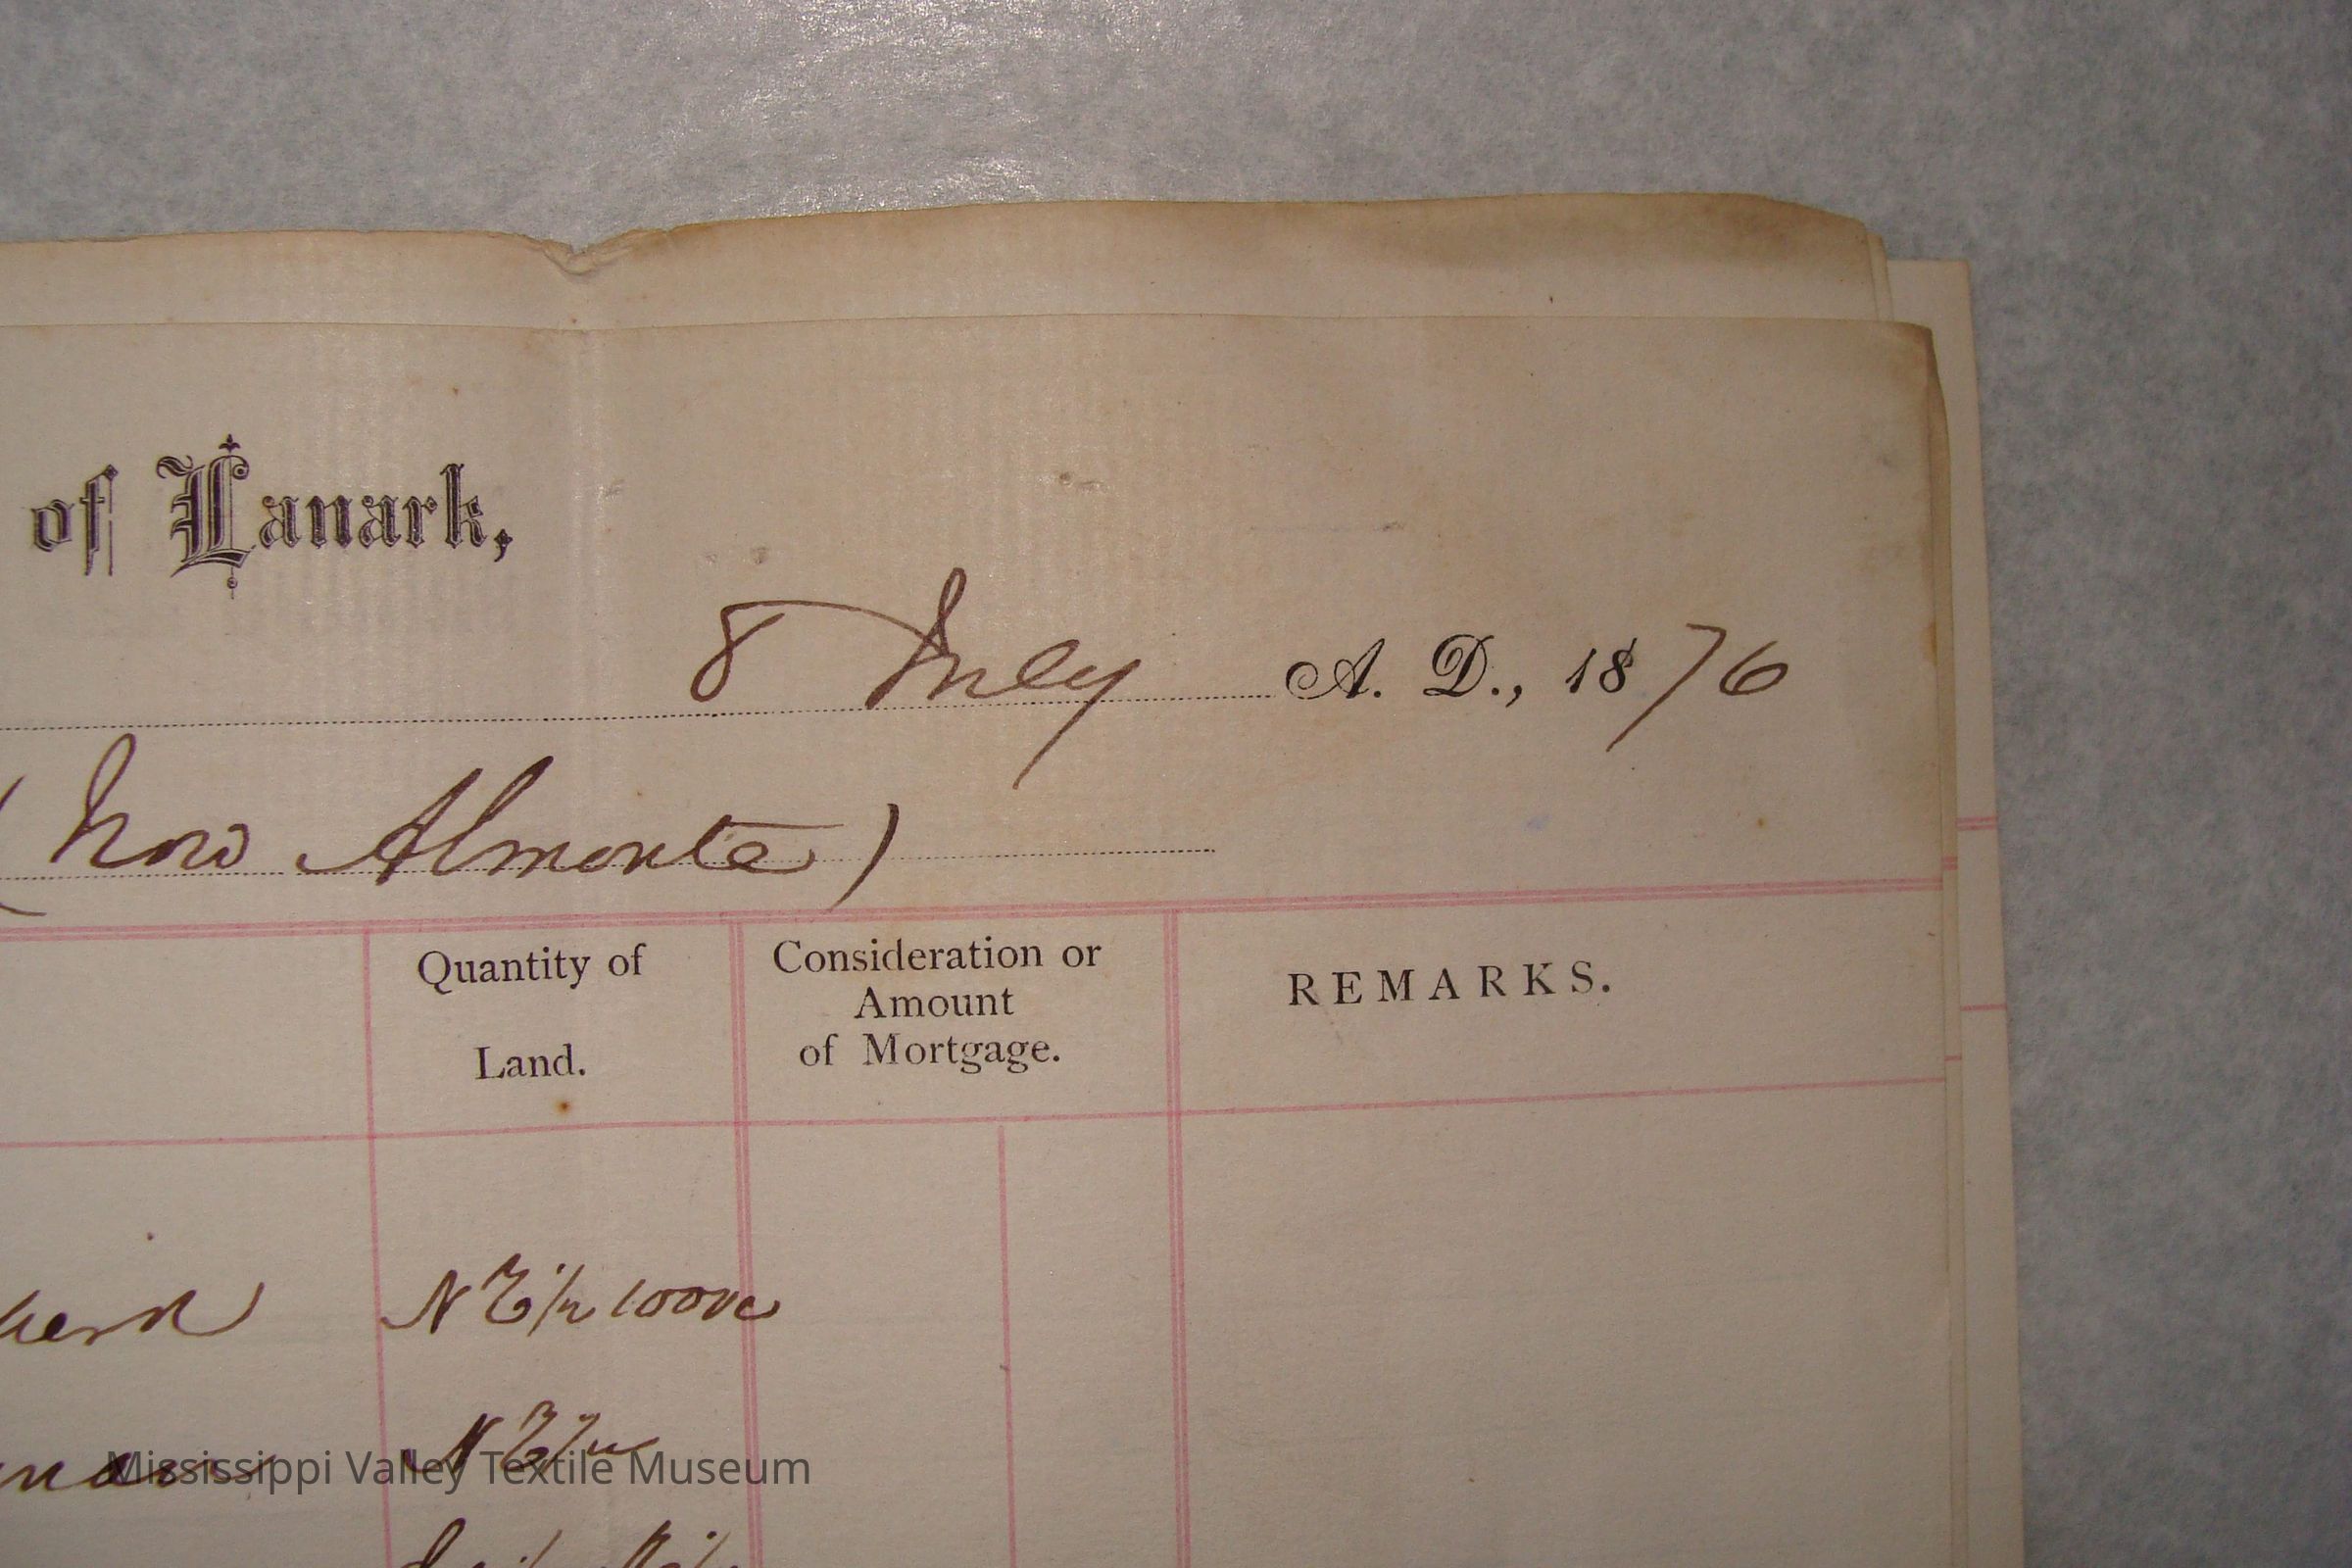 of Lanark,
8 July A. D., 1876
(Now Almonte)
Quantity of Land.
Consideration or Amount of Mortgage.
REMARKS.
N E 1/2 100 ac
N E 1/2
Mississippi Valley Textile Museum